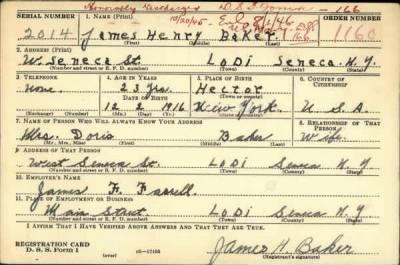 Honorably Discharged
10/20/45 - Enl. 8/2/46
166
SERIAL NUMBER 1. NAME (Print) ORDER NUMBER
2014 James Henry Baker 1160
2. ADDRESS (Print)
W. Seneca St. LoDi Seneca N.Y.
(Number and street or R. F. D. number) (Town) (County) (State)
3. TELEPHONE 4. AGE IN YEARS 5. PLACE OF BIRTH 6. COUNTRY OF CITIZENSHIP
None. 23 yrs. Hector
DATE OF BIRTH
12 2 1916 New York. U S A
(Exchange) (Number) (Mo.) (Day) (Yr.) (State or country)
7. NAME OF PERSON WHO WILL ALWAYS KNOW YOUR ADDRESS 8. RELATIONSHIP OF THAT PERSON
Mrs. Doris Baker Wife
(Mr., Mrs., Miss) (First) (Middle) (Last)
9. ADDRESS OF THAT PERSON
West Seneca St. LoDi Seneca N.Y
(Number and street or R. F. D. number) (Town) (County) (State)
10. EMPLOYER'S NAME
James F. Farrell
11. PLACE OF EMPLOYMENT OR BUSINESS
Main Street LoDi Seneca N.Y
(Number and street or R. F. D. number) (Town) (County) (State)
I AFFIRM THAT I HAVE VERIFIED ABOVE ANSWERS AND THAT THEY ARE TRUE.
REGISTRATION CARD
D. S. S. Form 1 (over) 16-17105
James H. Baker
(Registrant's signature)